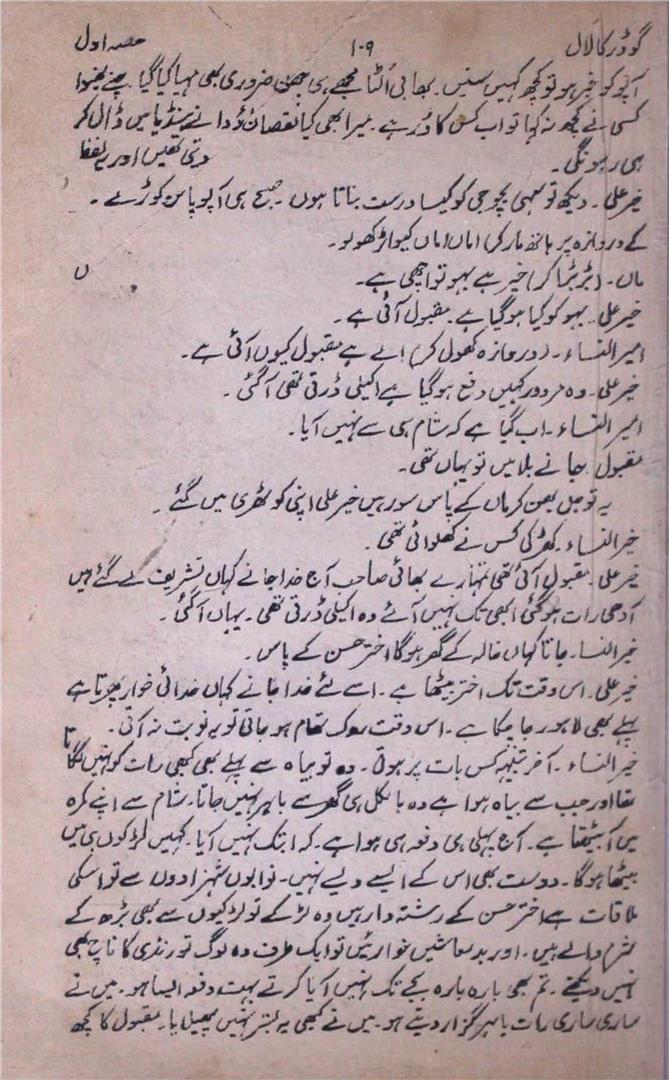 گوڈر کا لال ۱۰۹ حصہ اول
آپو کو خبر ہو تو کچھ کہیں سنیں۔ بھابی اُلٹا مجھے ہی ضروری بھی کہا گیا
کسی نے کچھ نہ کہا تو اب کس کا ڈر ہے۔ میرا بھی کیا نقصان ڈال کر
ہی رہونگی۔ دیتی تھیں اور یہ لفظ
خیر علی۔ دیکھ تو سہی بچو جی کو کیسا درست بناتا ہوں۔ صبح ہی آپو پاس
کے دروازہ پر ہاتھ مار کر) اماں اماں کیواڑ کھولو۔
ماں۔ (بڑبڑا کر) خیر ہے بہو تو اچھی ہے۔
خیر علی۔ بہو کو کیا ہو گیا ہے۔ مقبول آئی ہے۔
امیر النساء۔ (دروازہ کھول کر) اے ہے مقبول کیوں آئی ہے۔
خیر علی۔ وہ مردود کہیں دفع ہو گیا ہے اکیلی ڈرتی تھی آ گئی۔
امیر النساء۔ اب گیا ہے کہ شام ہی سے نہیں آیا۔
مقبول۔ جانے بلا میں تو یہاں تھی۔
یہ تو جل بھن کر ماں کے پاس سو رہیں خیر علی اپنی کوٹھری میں گئے۔
خیر النساء۔ کھڑکی کس نے کھلوائی تھی۔
خیر علی۔ مقبول آئی تھی تمہارے بھائی صاحب آج خدا جانے کہاں تشریف لے گئے ہیں
آدھی رات ہو گئی ابھی تک نہیں آئے وہ اکیلی ڈرتی تھی۔ یہاں آ گئی۔
خیر النساء۔ جاتا کہاں خالہ کے گھر ہوگا اختر حسن کے پاس۔
خیر علی۔ اس وقت تک اختر بیٹھا ہے۔ اسے لئے خدا جانے کہاں خدائی خوار پھرتا ہے
پہلے بھی لاہور جا چکا ہے۔ اس وقت روک تھام ہو جاتی تو یہ نوبت نہ آتی۔
خیر النساء۔ آخر تنبیہہ کس بات پر ہوتی۔ وہ تو بیاہ سے پہلے بھی کبھی رات کو نہیں نکلتا
تھا اور جب سے بیاہ ہوا ہے وہ بالکل ہی گھر سے باہر نہیں جاتا۔ شام سے اپنے کمرہ
میں آ بیٹھتا ہے۔ آج پہلی ہی دفعہ ہی ہوا ہے۔ کہ ابتک نہیں آیا۔ کہیں لڑکوں ہی میں
بیٹھا ہوگا۔ دوست بھی اس کے ایسے ویسے نہیں۔ نوابوں شہزادوں سے تو اسکی
ملاقات ہے اختر حسن کے رشتہ دار ہیں وہ لڑکے تو لڑکیوں سے بھی بڑھ کے
شرم والے ہیں۔ اور بدمعاشیں خواریئیں تو ایک طرف وہ لوگ تو رنڈی کا ناچ بھی
نہیں دیکھتے۔ تم بھی بارہ بارہ بجے تک نہیں آیا کرتے بہت دفعہ ایسا ہو۔ میں نے
ساری ساری رات باہر گزار دیتے ہو۔ میں نے کبھی یہ نہیں پھیلایا۔ مقبول کا کچھ